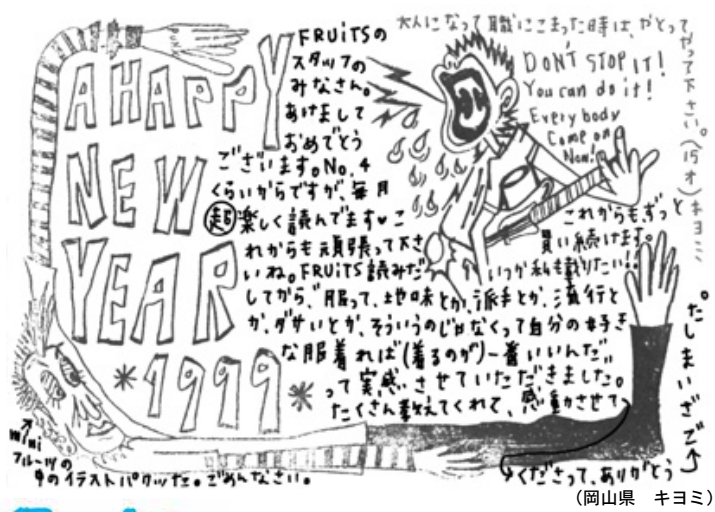 A HAPPY
NEW
YEAR
*1999*
FRUiTSの
スタッフの
みなさん。
あけまして
おめでとう
ございます。No.4
くらいからですが、毎月
超楽しく読んでます♥こ
れからも頑張って下さ
いね。FRUiTS読みだ
してから、"服って、地味とか、派手とか、流行と
か、ダサいとか、そういうのじゃなくって自分の好き
な服着れば(着るのが)一番いいんだ"
って実感させていただきました。
たくさん教えてくれて、感動させて
くださって、ありがとう
大人になって職にこまった時は、やとって
やって下さい。(15才)キヨミ
DON'T STOP IT!
You can do it!
Every body
Come on
Now!
これからもずっと
買い続けます。
いつか私も載りたい!!
mini
フルーツの
中のイラストパクッた。ごめんなさい。
(岡山県 キヨミ)